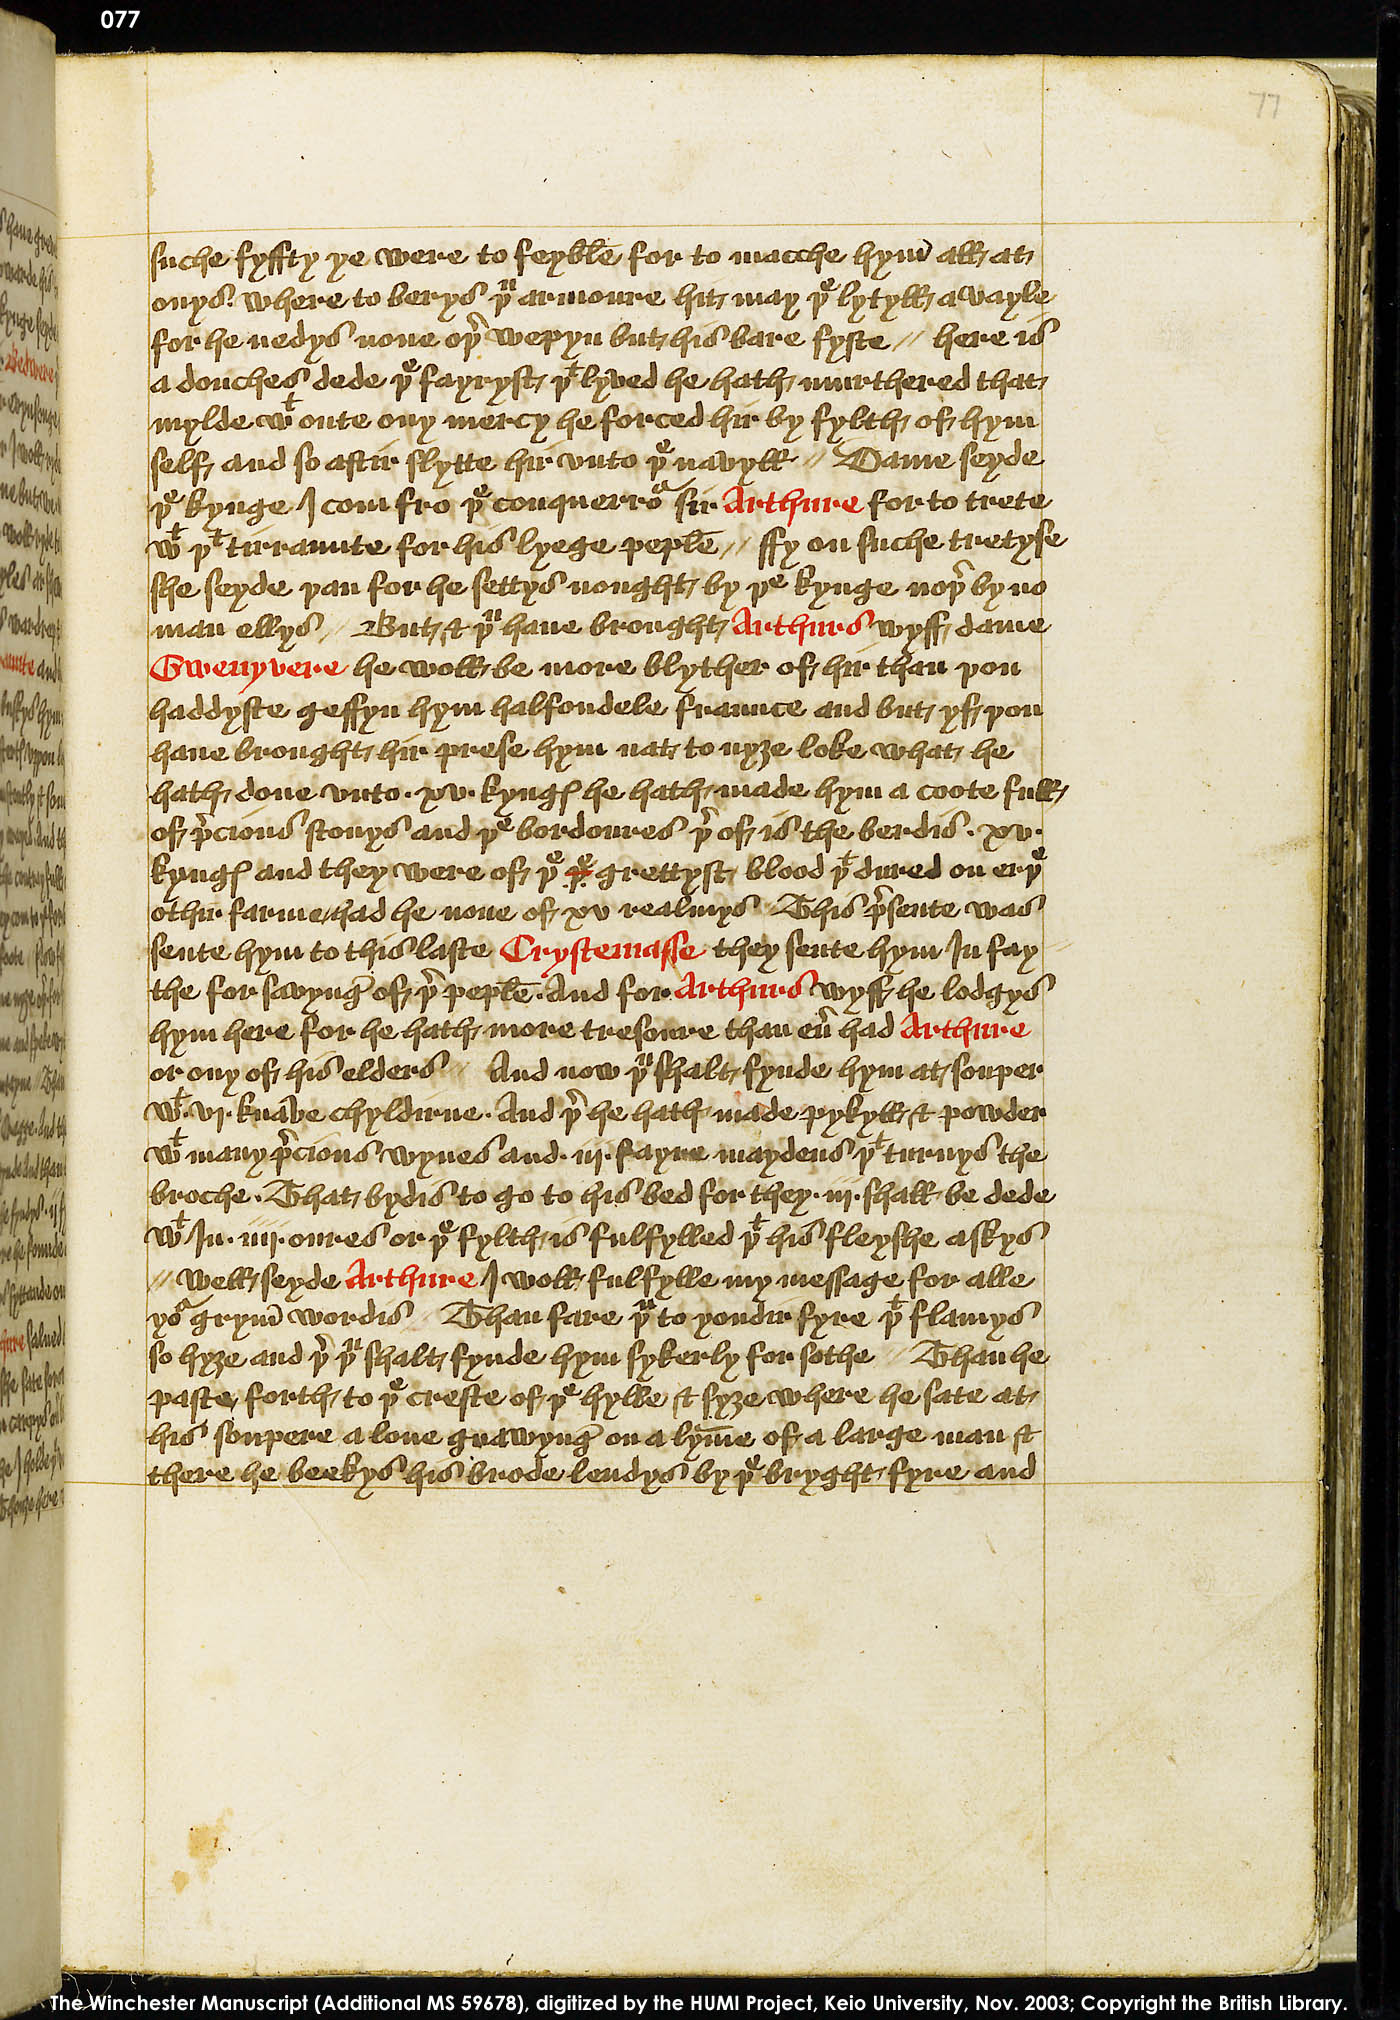 077
77
suche fyffty ye were to feyble for to macche hym̄ all at
onys. where to berys þu armoure hit may þe lytyll avayle
for he nedys none oþr wepyn but his bare fyste // here is
a douches dede þe fayryst þt lyved he hath murthered that
mylde wt oute ony mercy he forced hir by fylth of hym
self and so aftir slytte hir vnto þe navyll // Dame seyde
þe kynge I com fro þe conquerroa sir Arthure for to trete
wt þt tirraunte for his lyege peple // ffy on suche tretyse
she seyde þan for he settys nought by þe kynge noþr by no
man ellys // But & þu haue brought Arthurs wyff dame
Gwenyvere he woll be more blyther of hir than þou
haddyste geffyn hym halfondele fraunce and but yf þou
haue brought hir prese hym nat to nyȝe loke what he
hath done vnto . xv . kyngꝭ he hath made hym a coote full
of p̄cious stonys and þe bordoures þr of is the berdis . xv .
kyngꝭ and they were of þe þe grettyst blood þt dured on erþe
othir farme had he none of xv realmys // This p̄sente was
sente hym to this laste Crystemasse they sente hym In fay
the for savynḡ of þr peple . And for Arthurs wyff he lodgys
hym here for he hath more tresoure than eū had Arthure
or ony of his elders // And now þu shalt fynde hym at souper
wt . vi . knave chyldirne . And þr he hath made pykyll & powder
wt many p̄cious wynes and . iij . fayre maydens þt turnys the
broche . That bydis to go to his bed for they . iij . shall be dede
wt In . iiij . oures or þe fylth is fulfylled þt his fleyshe askys
// Well seyde Arthure I woll fulfylle my message for alle
yoa grym̄ wordis // Than fare þu to yondir fyre þt flamys
so hyȝe and þr þu shalt fynde hym sykerly for sothe // Than he
paste forth to þe creste of þe hylle & syȝe where he sate at
his soupere alone gnawynḡ on a lym̄e of a large man &
there he beekys his brode lendys by þe bryght fyre and
The Winchester Manuscript (Additional MS 59678), digitized by the HUMI Project, Keio University, Nov. 2003; Copyright the British Library.